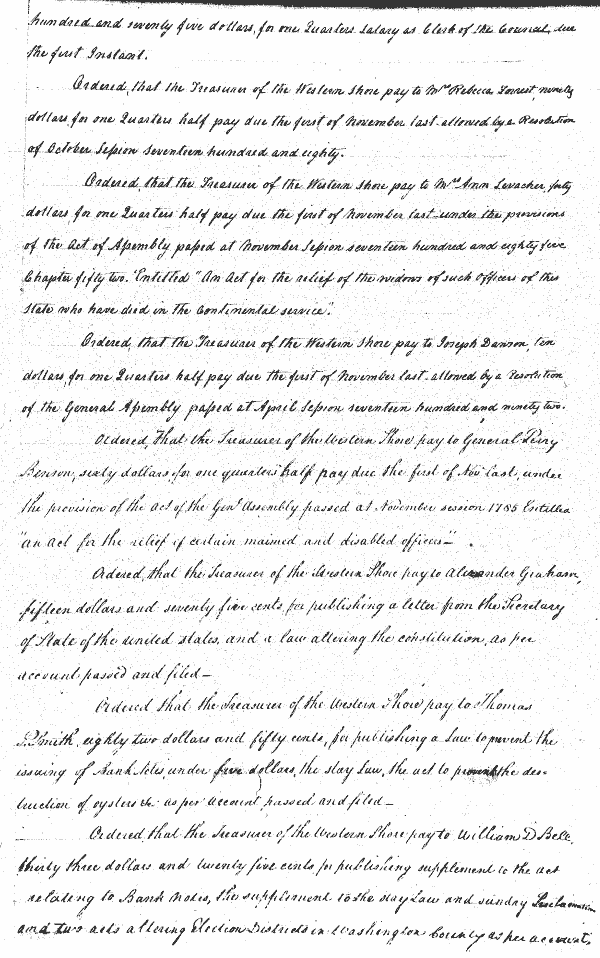 hundred and seventy five dollars, for one Quarters Salary as Clerk of the Council, due
the first Instant.
Ordered, that the Treasurer of the Western Shore pay to Mrs Rebecca Forrest, ninety
dollars, for one Quarters half pay due the first of November last allowed by a Resolution
of October Session seventeen hundred and eighty.
Ordered, that the Treasurer of the Western Shore pay to Mrs Ann Levacher, forty
dollars, for one Quarters half pay due the first of November last under the provisions
of the Act of Assembly passed at November Session seventeen hundred and eighty five
Chapter fifty two. Entitled "An Act for the relief of the widows of such Officers of this
State who have died in the Continental service".
Ordered, that the Treasurer of the Western Shore pay to Joseph Dawson, ten
dollars, for one Quarters half pay due the first of November last allowed by a Resolution
of the General Assembly passed at April Session seventeen hundred and ninety two.
Ordered, That the Treasurer of the Western Shore pay to General Perry
Benson, sixty dollars, for one quarters half pay due the first of Nov last, under
the provision of the act of the Genl Assembly passed at November session 1785 Entitled
"an act for the relief if certain maimed and disabled officers" –
Ordered, that the Treasurer of the Western Shore pay to Alexander Graham,
fifteen dollars and seventy five cents, for publishing a letter from the Secretary
of State of the united states, and a law altering the constitution, as per
account, passed and filed –
Ordered that the Treasurer of the Western Shore pay to Thomas
P. Smith, eighty two dollars and fifty cents, for publishing a Law to prevent the
issuing of Bank Notes, under five dollars, the stay Law, the act to prevent the des-
truction of oysters &c as per account passed and filed –
Ordered that the Treasurer of the Western Shore pay to William D Bell,
thirty three dollars and twenty five cents for publishing supplement to the act
relating to Bank Notes, the supplement to the stay Law and sundry Proclamations
and two acts altering Election Districts in Washington County as per accounts